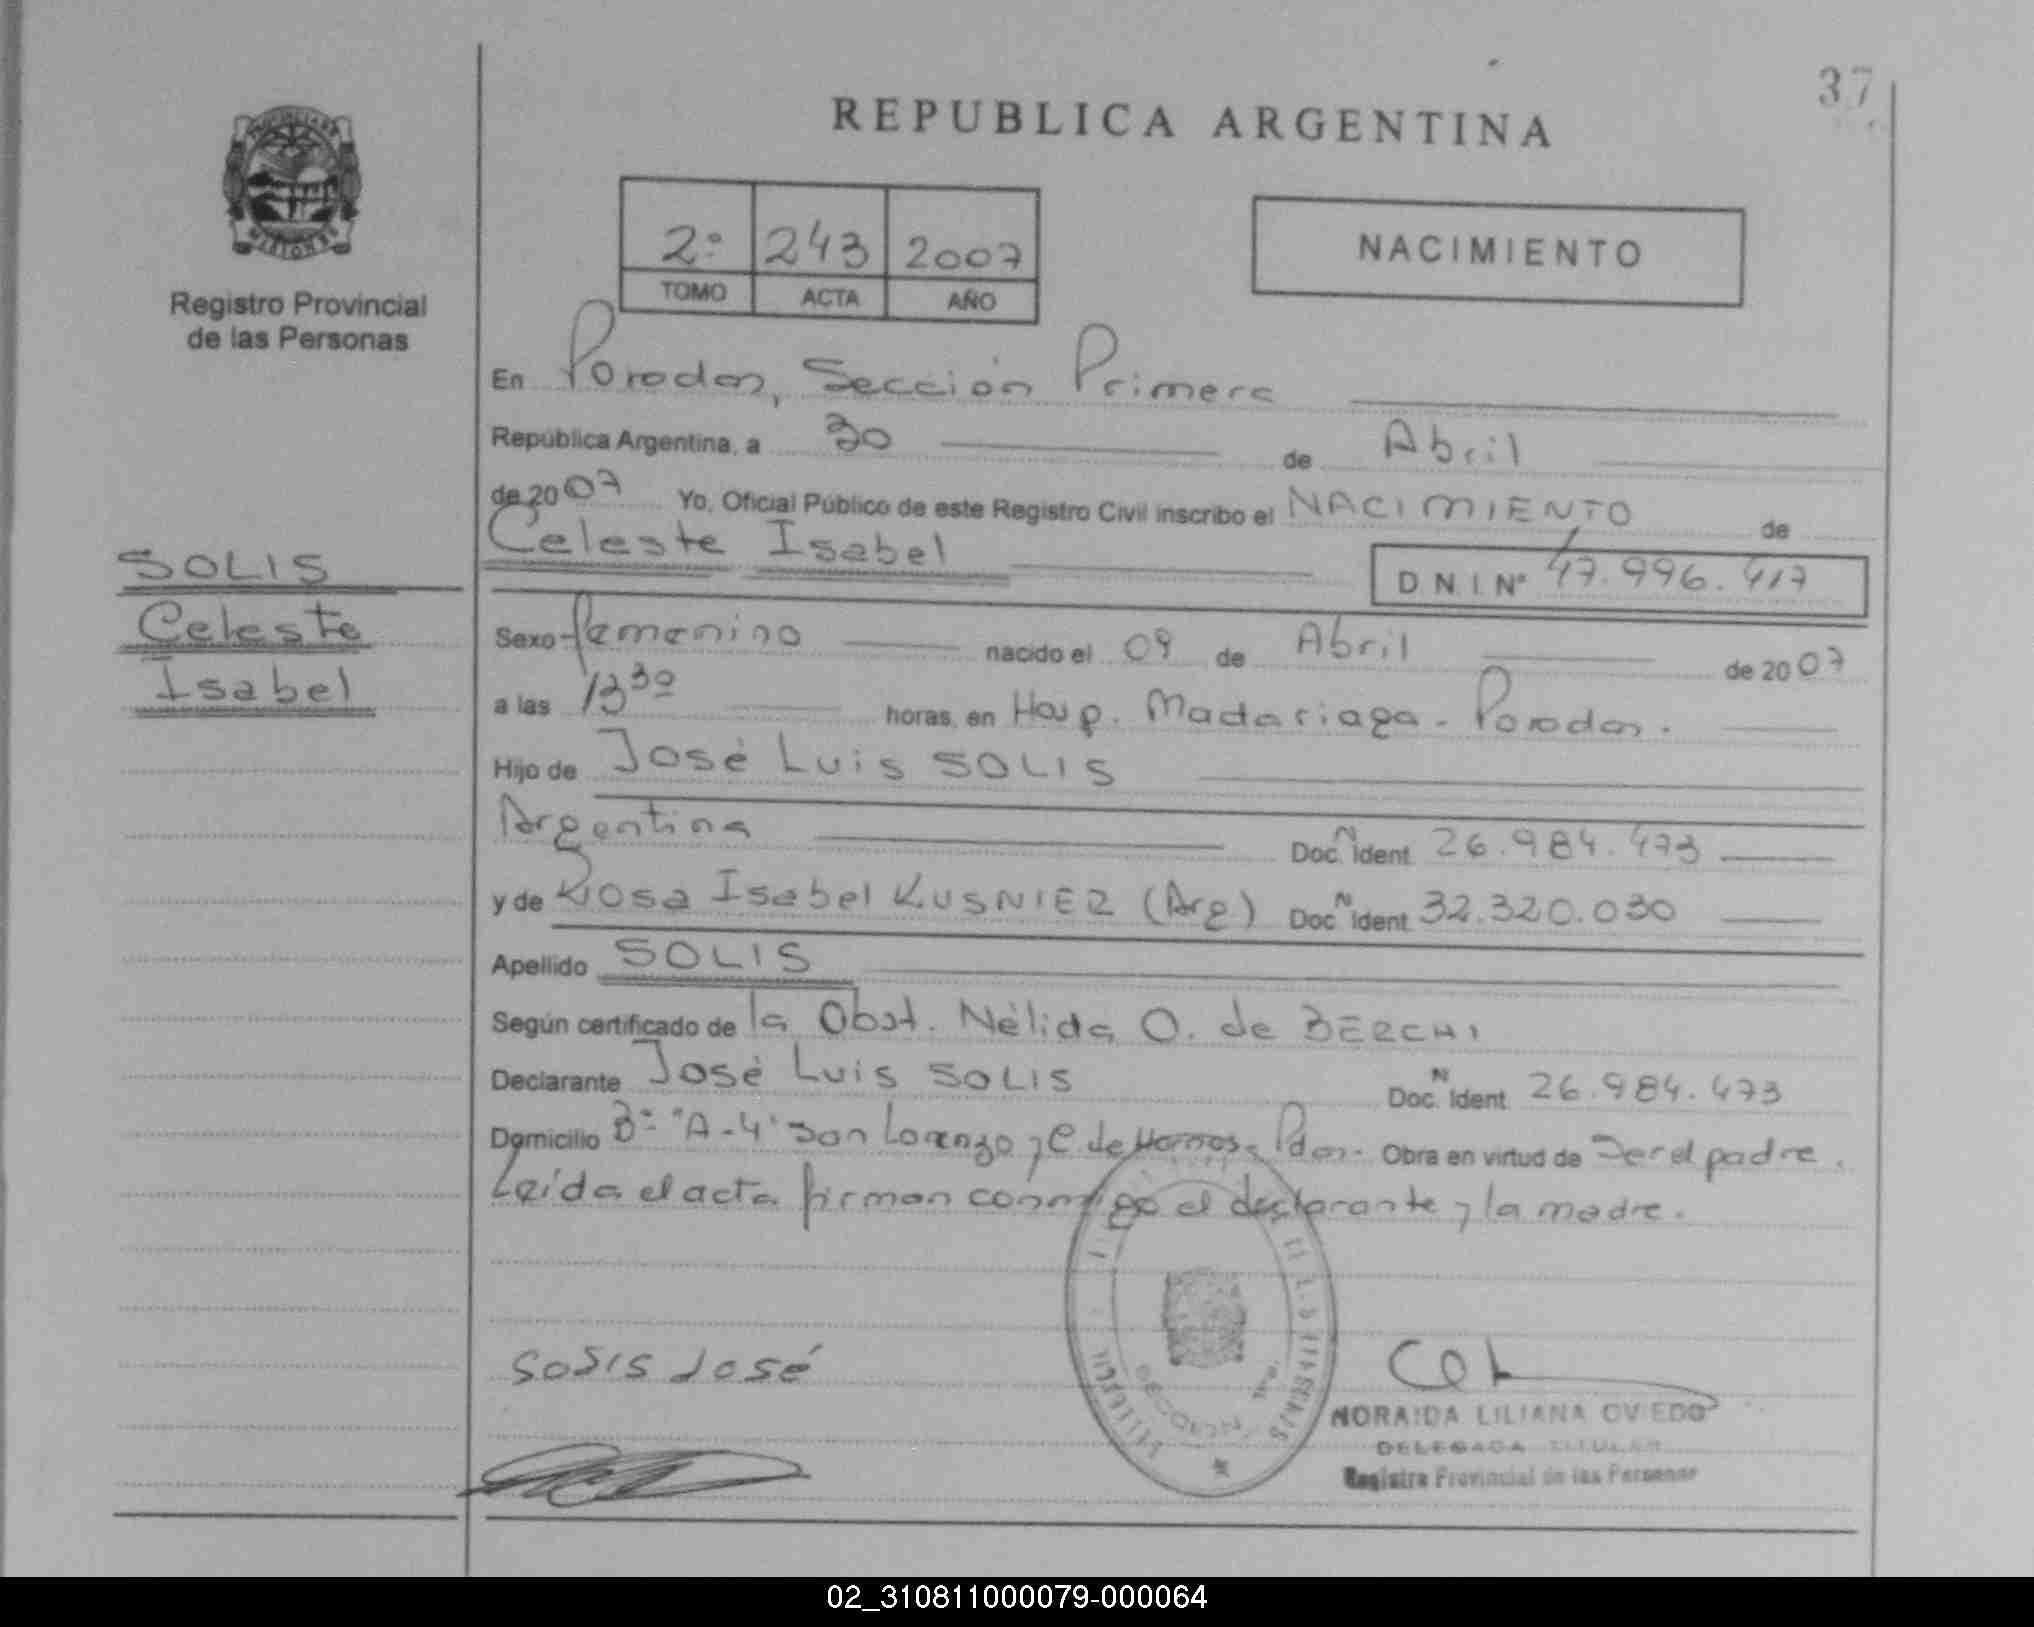 37
REPUBLICA ARGENTINA
PROVINCIA DE
MISIONES
Registro Provincial
de las Personas
2º 243 2007
TOMO ACTA AÑO
NACIMIENTO
En Posadas, Sección Primera
República Argentina, a 30 de Abril
de 2007 Yo, Oficial Público de este Registro Civil inscribo el NACIMIENTO de
Celeste Isabel
D.N.I. Nº 47.996.417
SOLIS
Celeste
Isabel
Sexo femenino nacido el 09 de Abril de 2007
a las 13 30 horas, en Hosp. Madariaga - Posadas.
Hijo de José Luis SOLIS
Argentina Doc. N Ident 26.984.473
y de Rosa Isabel KUSNIER (Arg) Doc N Ident 32.320.030
Apellido SOLIS
Según certificado de la Obst. Nélida O. de BERCHI
Declarante José Luis SOLIS Doc. N Ident 26.984.473
Domicilio Bº "A-4" San Lorenzo y C. de Hornos - Pdas. Obra en virtud de ser el padre.
Leída el acta firman conmigo el declarante y la madre.
SOLIS José
NORAIDA LILIANA OVIEDO
DELEGADA TITULAR
Registro Provincial de las Personas
02_310811000079-000064